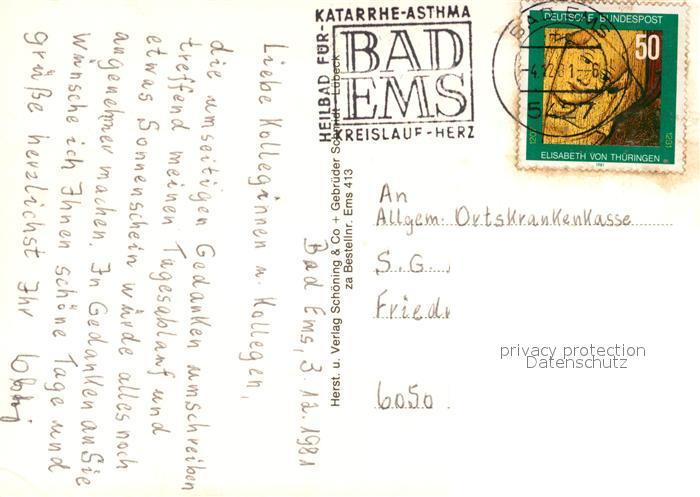 KATARRHE-ASTHMA
HEILBAD FÜR
BAD
EMS
KREISLAUF-HERZ
BAD EMS
-4.12.81-
DEUTSCHE BUNDESPOST
50
1207
1231
ELISABETH VON THÜRINGEN
1981
Herst. u. Verlag Schöning & Co + Gebrüder Schmidt - Lübeck
zu Bestellnr. Ems 413
Bad Ems, 3.12.1981
Liebe Kolleginnen u. Kollegen,
die umseitigen Gedanken umschreiben
treffend meinen Tagesablauf und
etwas Sonnenschein würde alles noch
angenehmer machen. In Gedanken an Sie
wünsche ich Ihnen schöne Tage und
grüße herzlichst Ihr
An
Allgem. Ortskrankenkasse
S.G.
Friedr
6050
privacy protection
Datenschutz